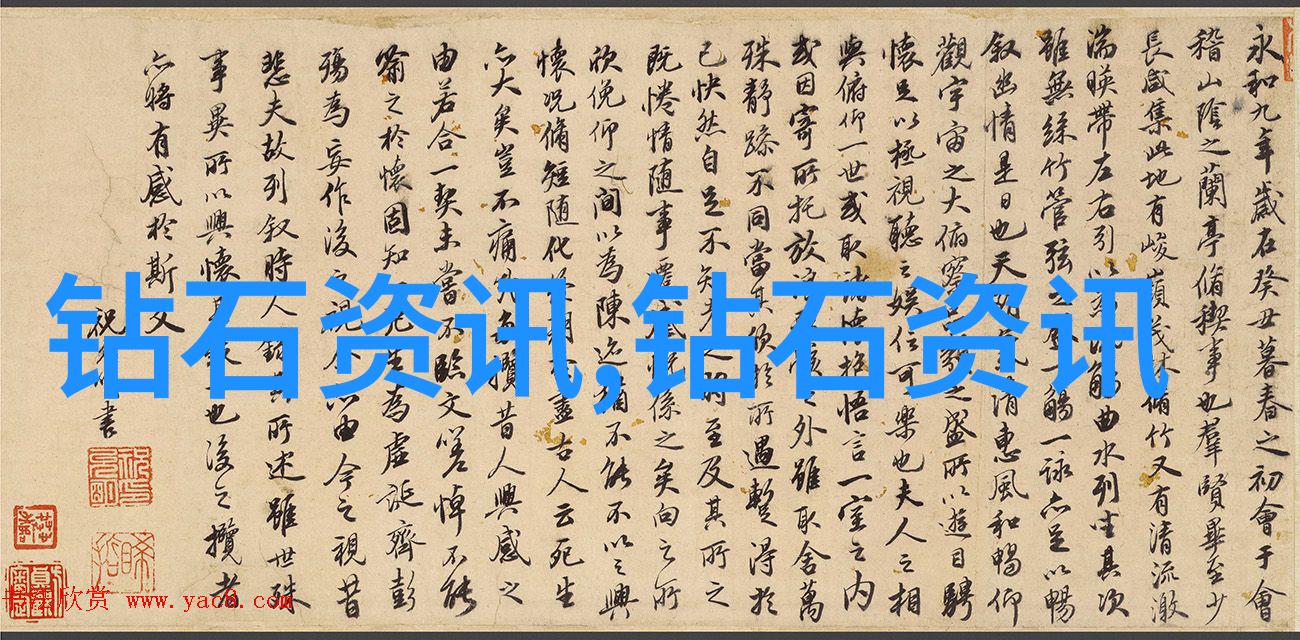 永和九年歲在癸丑暮春之初會于會
稽山陰之蘭亭脩稧事也羣賢畢至少
長咸集此地有峻嶺茂林脩竹又有清流激
湍暎帶左右引以為流觴曲水列坐其次
雖無絲竹管弦之盛一觴一詠亦足以暢
叙幽情是日也天朗氣清惠風和暢仰
觀宇宙之大俯察品類之盛所以遊目騁
懷足以極視聽之娛信可樂也夫人之相
與俯仰一世或取諸懷抱悟言一室之內
或因寄所托放浪形骸之外雖取舍萬
殊靜躁不同當其欣於所遇蹔得於
己快然自足不知老之將至及其所之
既惓情随事遷感慨係之矣向之所
欣俛仰之間以為陳迹猶不能不以之興
懷況脩短随化終期於盡古人云死生
亦大矣豈不痛哉每攬昔人興感之
由若合一契未嘗不臨文嗟悼不能
喻之於懷固知一死生為虛誕齊彭
殤為妄作後之視今亦由今之視昔
悲夫故列叙時人錄其所述雖世殊
事異所以興懷其致一也後之攬者
亦將有感於斯文
祝書
钻石资讯,钻石资讯
书法欣赏 www.yac8.com